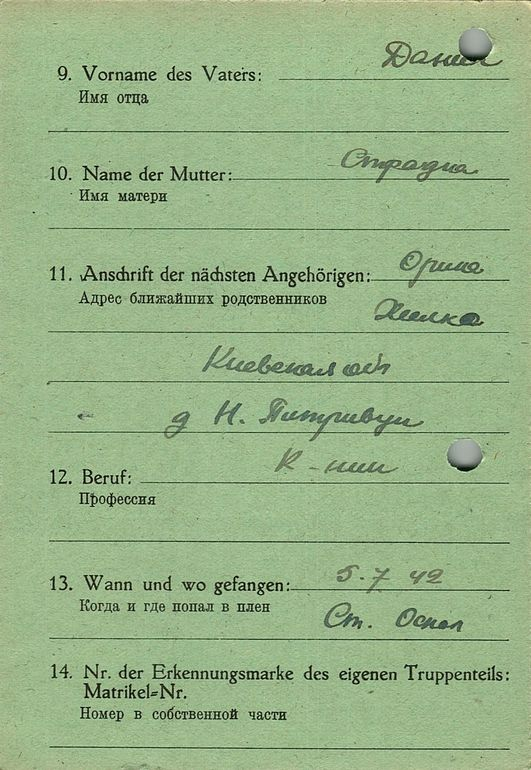 Данил
9. Vorname des Vaters:
Имя отца
10. Name der Mutter:
Имя матери
Орина
11. Anschrift der nächsten Angehörigen:
Адрес ближайших родственников
Хилка
Киевская
д Н.
К-ник
12. Beruf:
Профессия
5.7 42
13. Wann und wo gefangen:
Когда и где попал в плен
Ст. Оскол
14. Nr. der Erkennungsmarke des eigenen Truppenteils:
Matrikel=Nr.
Номер в собственной части